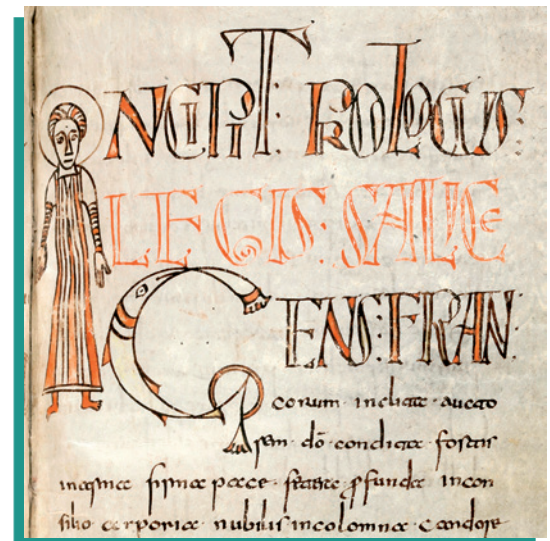 INCIPIT PROLOGUS:
LEGIS: SALICE
GENS:FRAN:
corum · inclita · aucto
rem · dō condita · fortis
firma pace · ꝓfunda incon
silio corporia nubilis incolomna candore